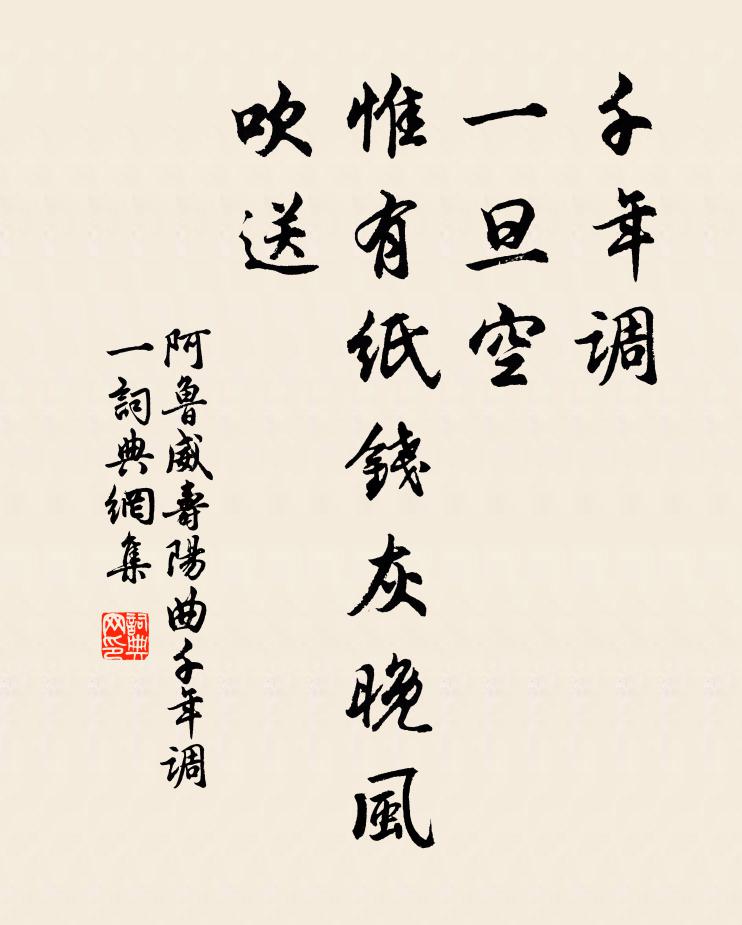 千年调
一旦空
惟有紙錢灰晚風
吹送
阿魯威壽陽曲千年调
一詞典網集
詞典
网印